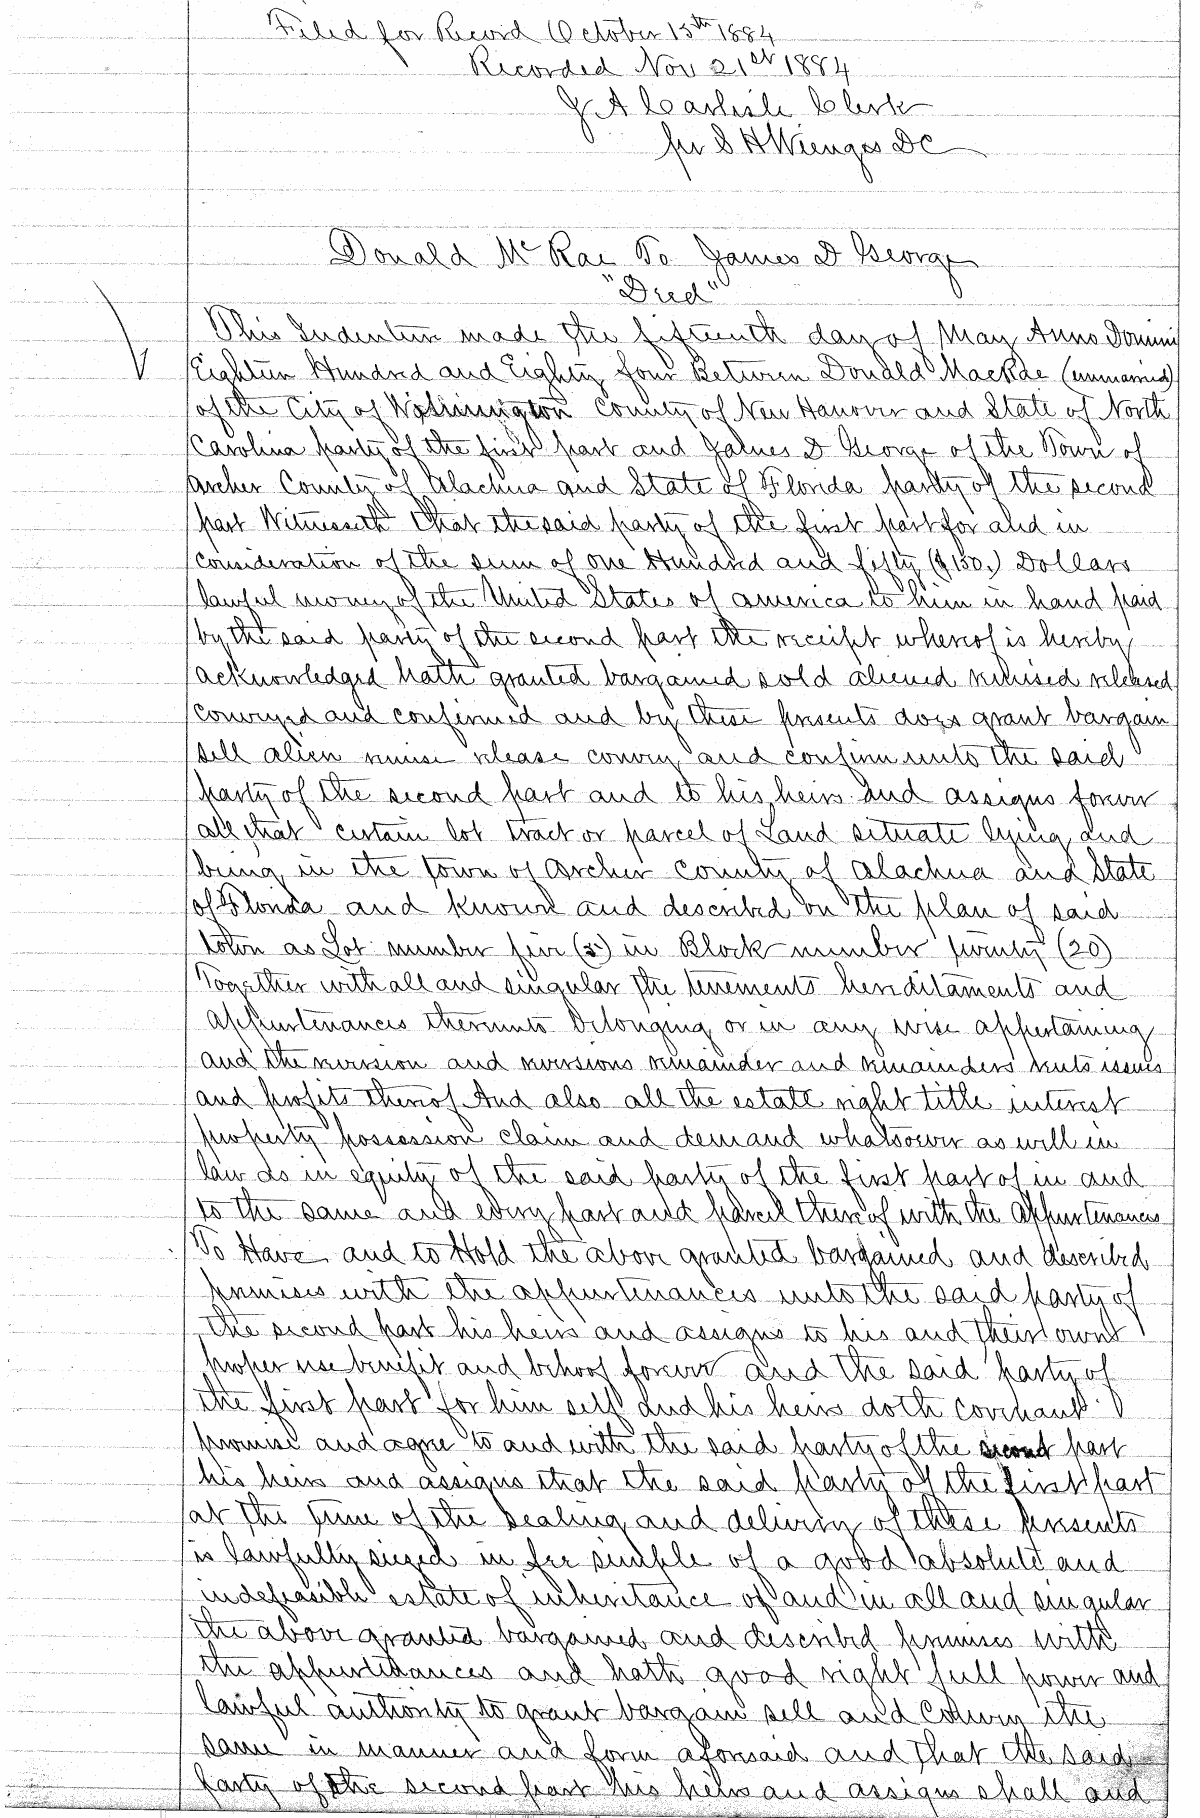 Filed for Record October 15th 1884
Recorded Nov 21st 1884
J A Carlisle Clerk
per S H Wienges DC
Donald Mc Rae To James D George
"Deed"
This Indenture made the fifteenth day of May Anno Domini
Eighteen Hundred and Eighty four Between Donald MacRae (unmarried)
of the City of Wilmington County of New Hanover and State of North
Carolina party of the first part and James D George of the Town of
Archer County of Alachua and State of Florida party of the second
part Witnesseth that the said party of the first part for and in
consideration of the sum of one Hundred and fifty ($150.) Dollars
lawful money of the United States of america to him in hand paid
by the said party of the second part the receipt whereof is hereby
acknowledged hath granted bargained sold aliened remised released
conveyed and confirmed and by these presents does grant bargain
sell alien remise release convey and confirm unto the said
party of the second part and to his heirs and assigns forever
all that certain lot tract or parcel of Land situate lying and
being in the town of Archer County of Alachua and State
of Florida and known and described on the plan of said
town as Lot number five (5) in Block number twenty (20)
Together with all and singular the tenements hereditaments and
appurtenances thereunto belonging or in any wise appertaining
and the reversion and reversions remainder and remainders rents issues
and profits thereof And also all the estate right title interest
property possession claim and demand whatsoever as well in
law as in equity of the said party of the first part of in and
to the same and every part and parcel thereof with the appurtenances
To Have and to Hold the above granted bargained and described
premises with the appurtenances unto the said party of
the second part his heirs and assigns to his and their own
proper use benefit and behoof forever and the said party of
the first part for him self and his heirs doth covenant
promise and agree to and with the said party of the second part
his heirs and assigns that the said party of the first part
at the time of the sealing and delivery of these presents
is lawfully siezed in fee simple of a good absolute and
indefeasible estate of inheritance of and in all and singular
the above granted bargained and described premises with
the appurtenances and hath good right full power and
lawful authority to grant bargain sell and Convey the
same in manner and form aforesaid and that the said
party of the second part his heirs and assigns shall and